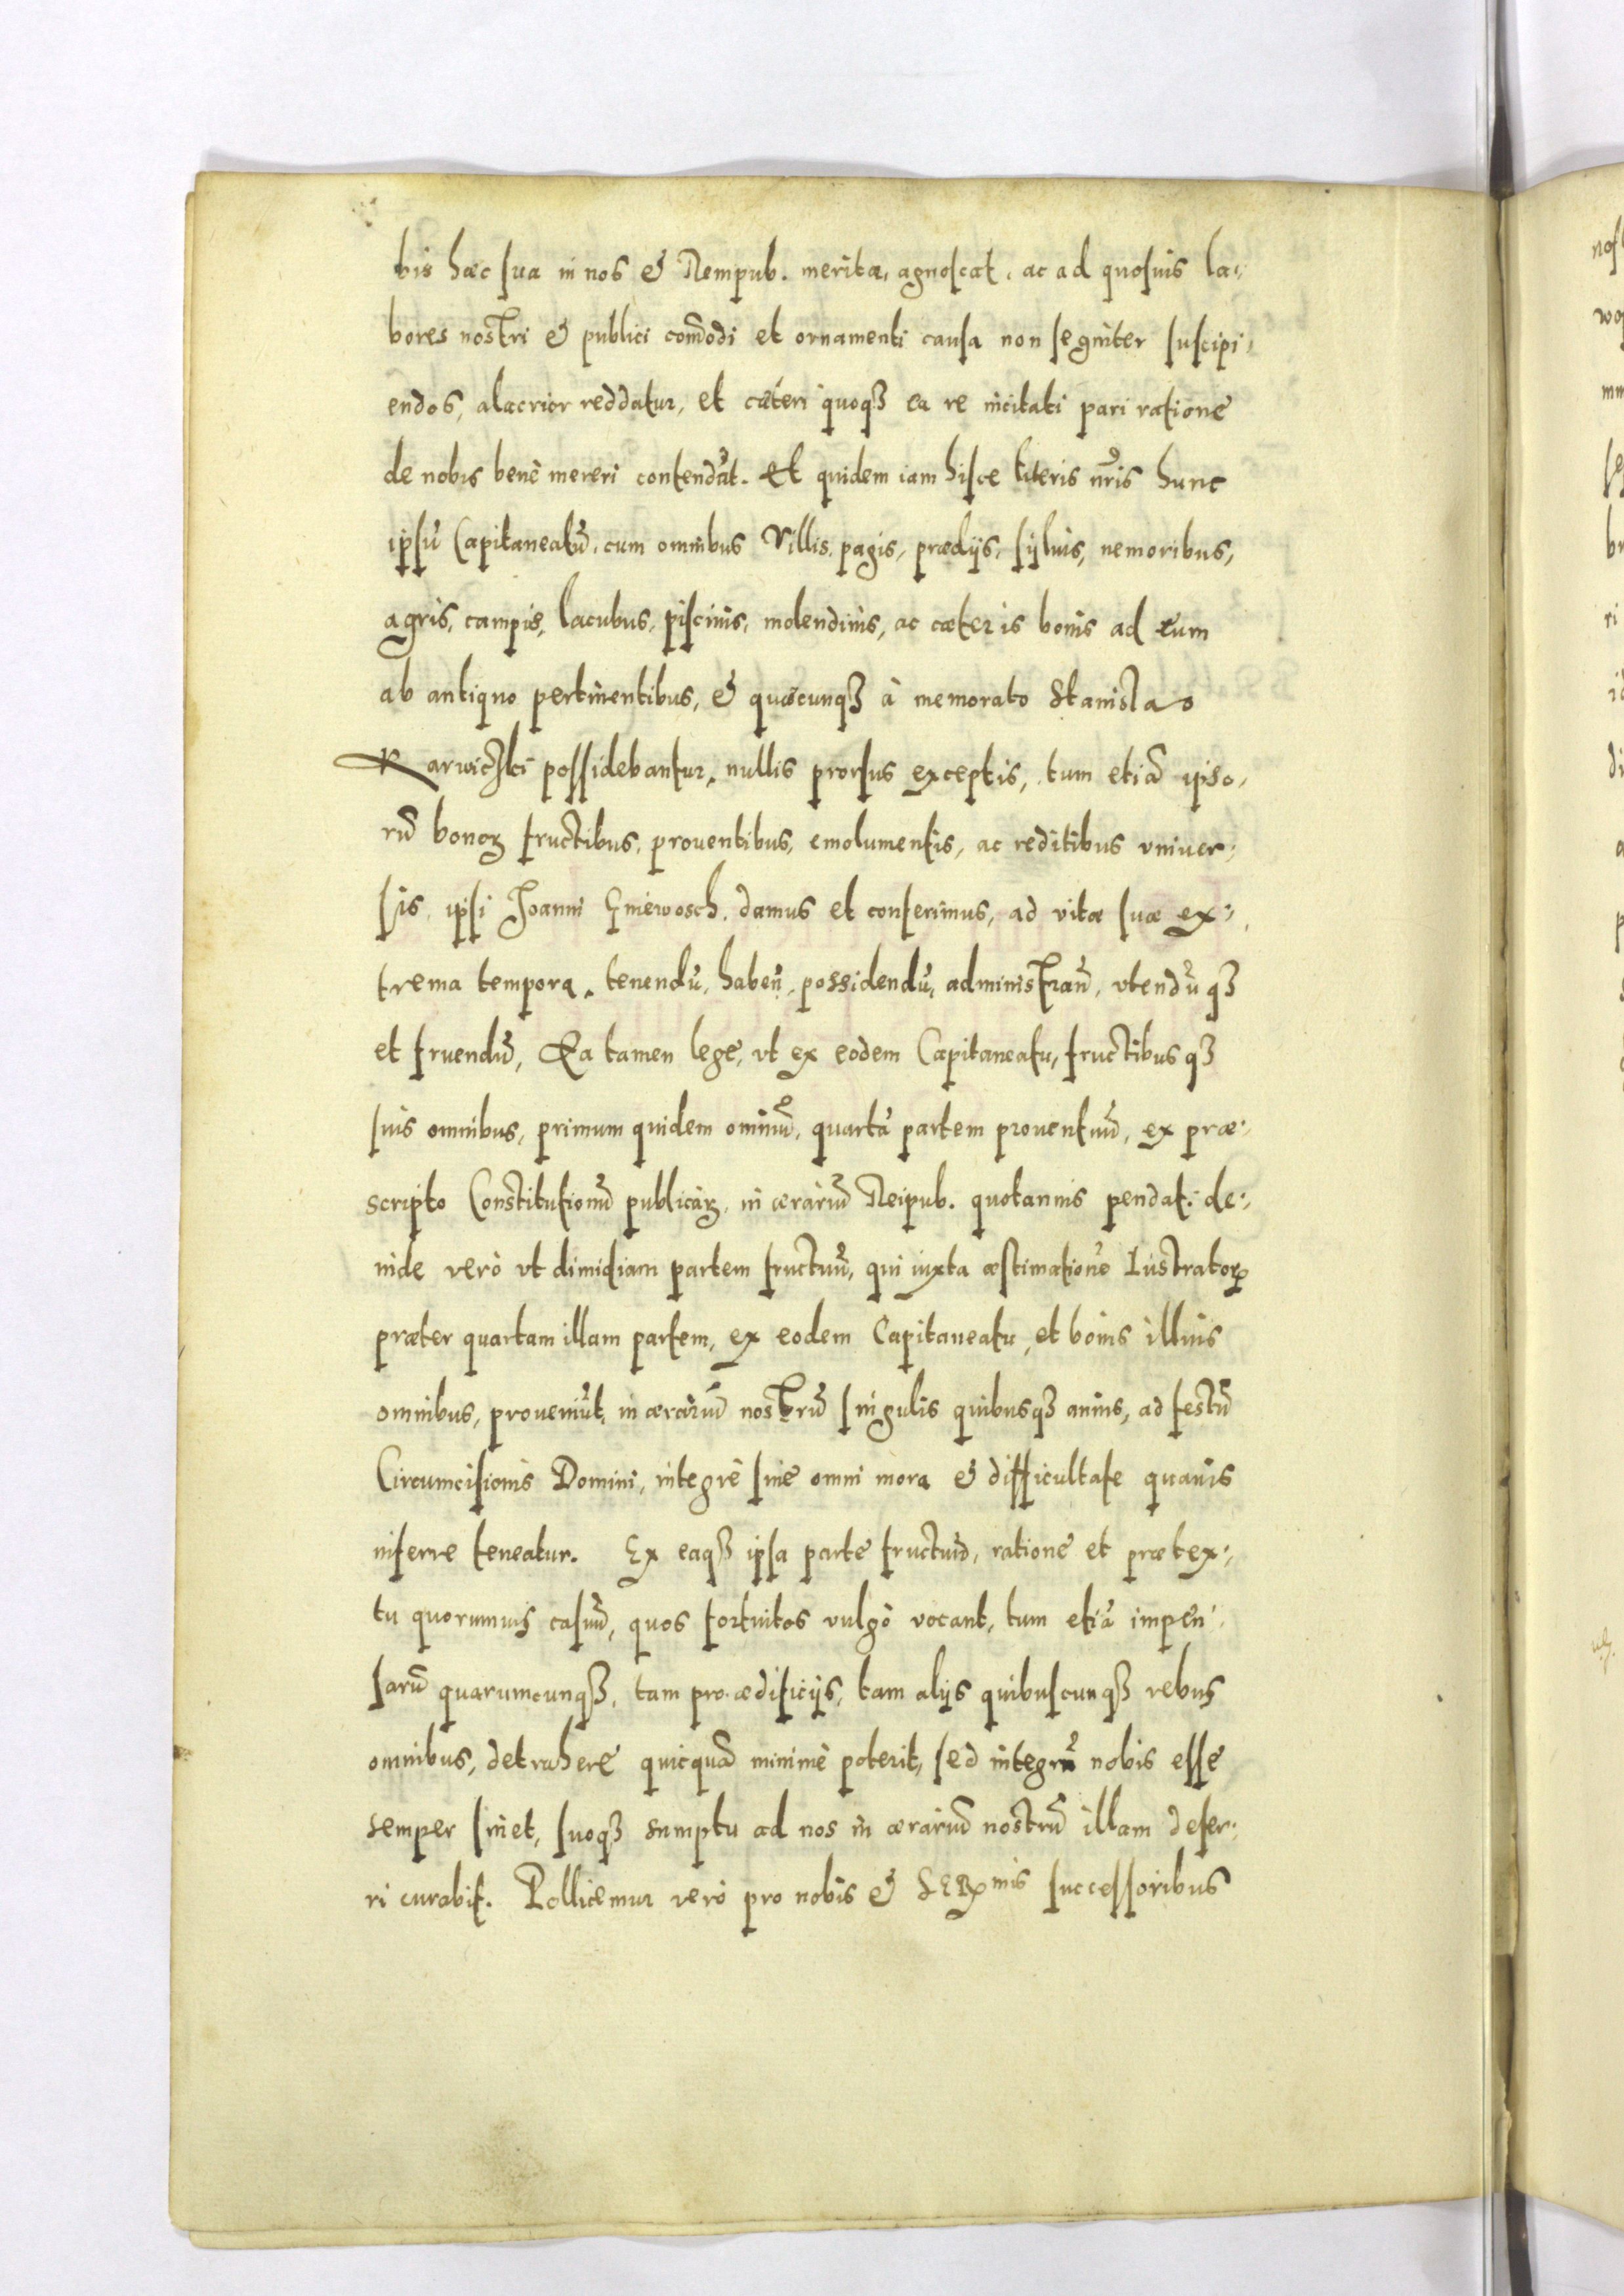 bis hæc sua in nos & Rempub. merita, agnoscat, ac ad quosuis la-
bores nostri & publici com̃odi et ornamenti causa non segniter suscipi-
endos, alacrior reddatur, et cæteri quoqꝫ ea re incitati pari ratione
de nobis benè mereri contendãt. Et quidem iam hisce literis nr̃is hunc
ipsũ Capitaneatũ, cum omnibus Villis, pagis, prædijs, syluis, nemoribus,
agris, campis, lacubus, piscinis, molendinis, ac cæteris bonis ad eum
ab antiquo pertinentibus, & quæcunqꝫ à memorato Stanislao
Karwiczki possidebantur, nullis prorsus exceptis, tum etiã ipso-
rũ bonoꝝ fructibus, prouentibus, emolumentis, ac reditibus vniuer-
sis, ipsi Joanni Gniewosch, damus et conferimus, ad vitæ suæ ex-
trema tempora, tenendũ, habeñ, possidendũ, administrañ, vtendũqꝫ
et fruendũ, Ea tamen lege, vt ex eodem Capitaneatu, fructibusqꝫ
suis omnibus, primum quidem omniũ, quartã partem prouentuũ, ex præ-
scripto Constitutionũ publicaꝝ, in ærariũ Reipub. quotannis pendat: de-
inde verò vt dimidiam partem fructuũ, qui iuxta æstimationẽ Lustratoꝝ
præter quartam illam partem, ex eodem Capitaneatu, et bonis illius
omnibus, proueniũt, in ærariũ nostrũ singulis quibusqꝫ annis, ad festũ
Circumcisionis Domini, integrè sine omni mora & difficultate quauis
inferre teneatur. Ex eaqꝫ ipsa parte fructuũ, ratione et prætex-
tu quorumuis casuũ, quos fortuitos vulgò vocant, tum etiã impen-
sarũ quarumcunqꝫ, tam pro ædificijs, tam alijs quibuscunqꝫ rebus
omnibus, detrahere quicquã minimè poterit, sed integrũ nobis esse
semper sinet, suoqꝫ sumptu ad nos in ærariũ nostrũ illam defer-
ri curabit. Pollicemur verò pro nobis & SERmis successoribus